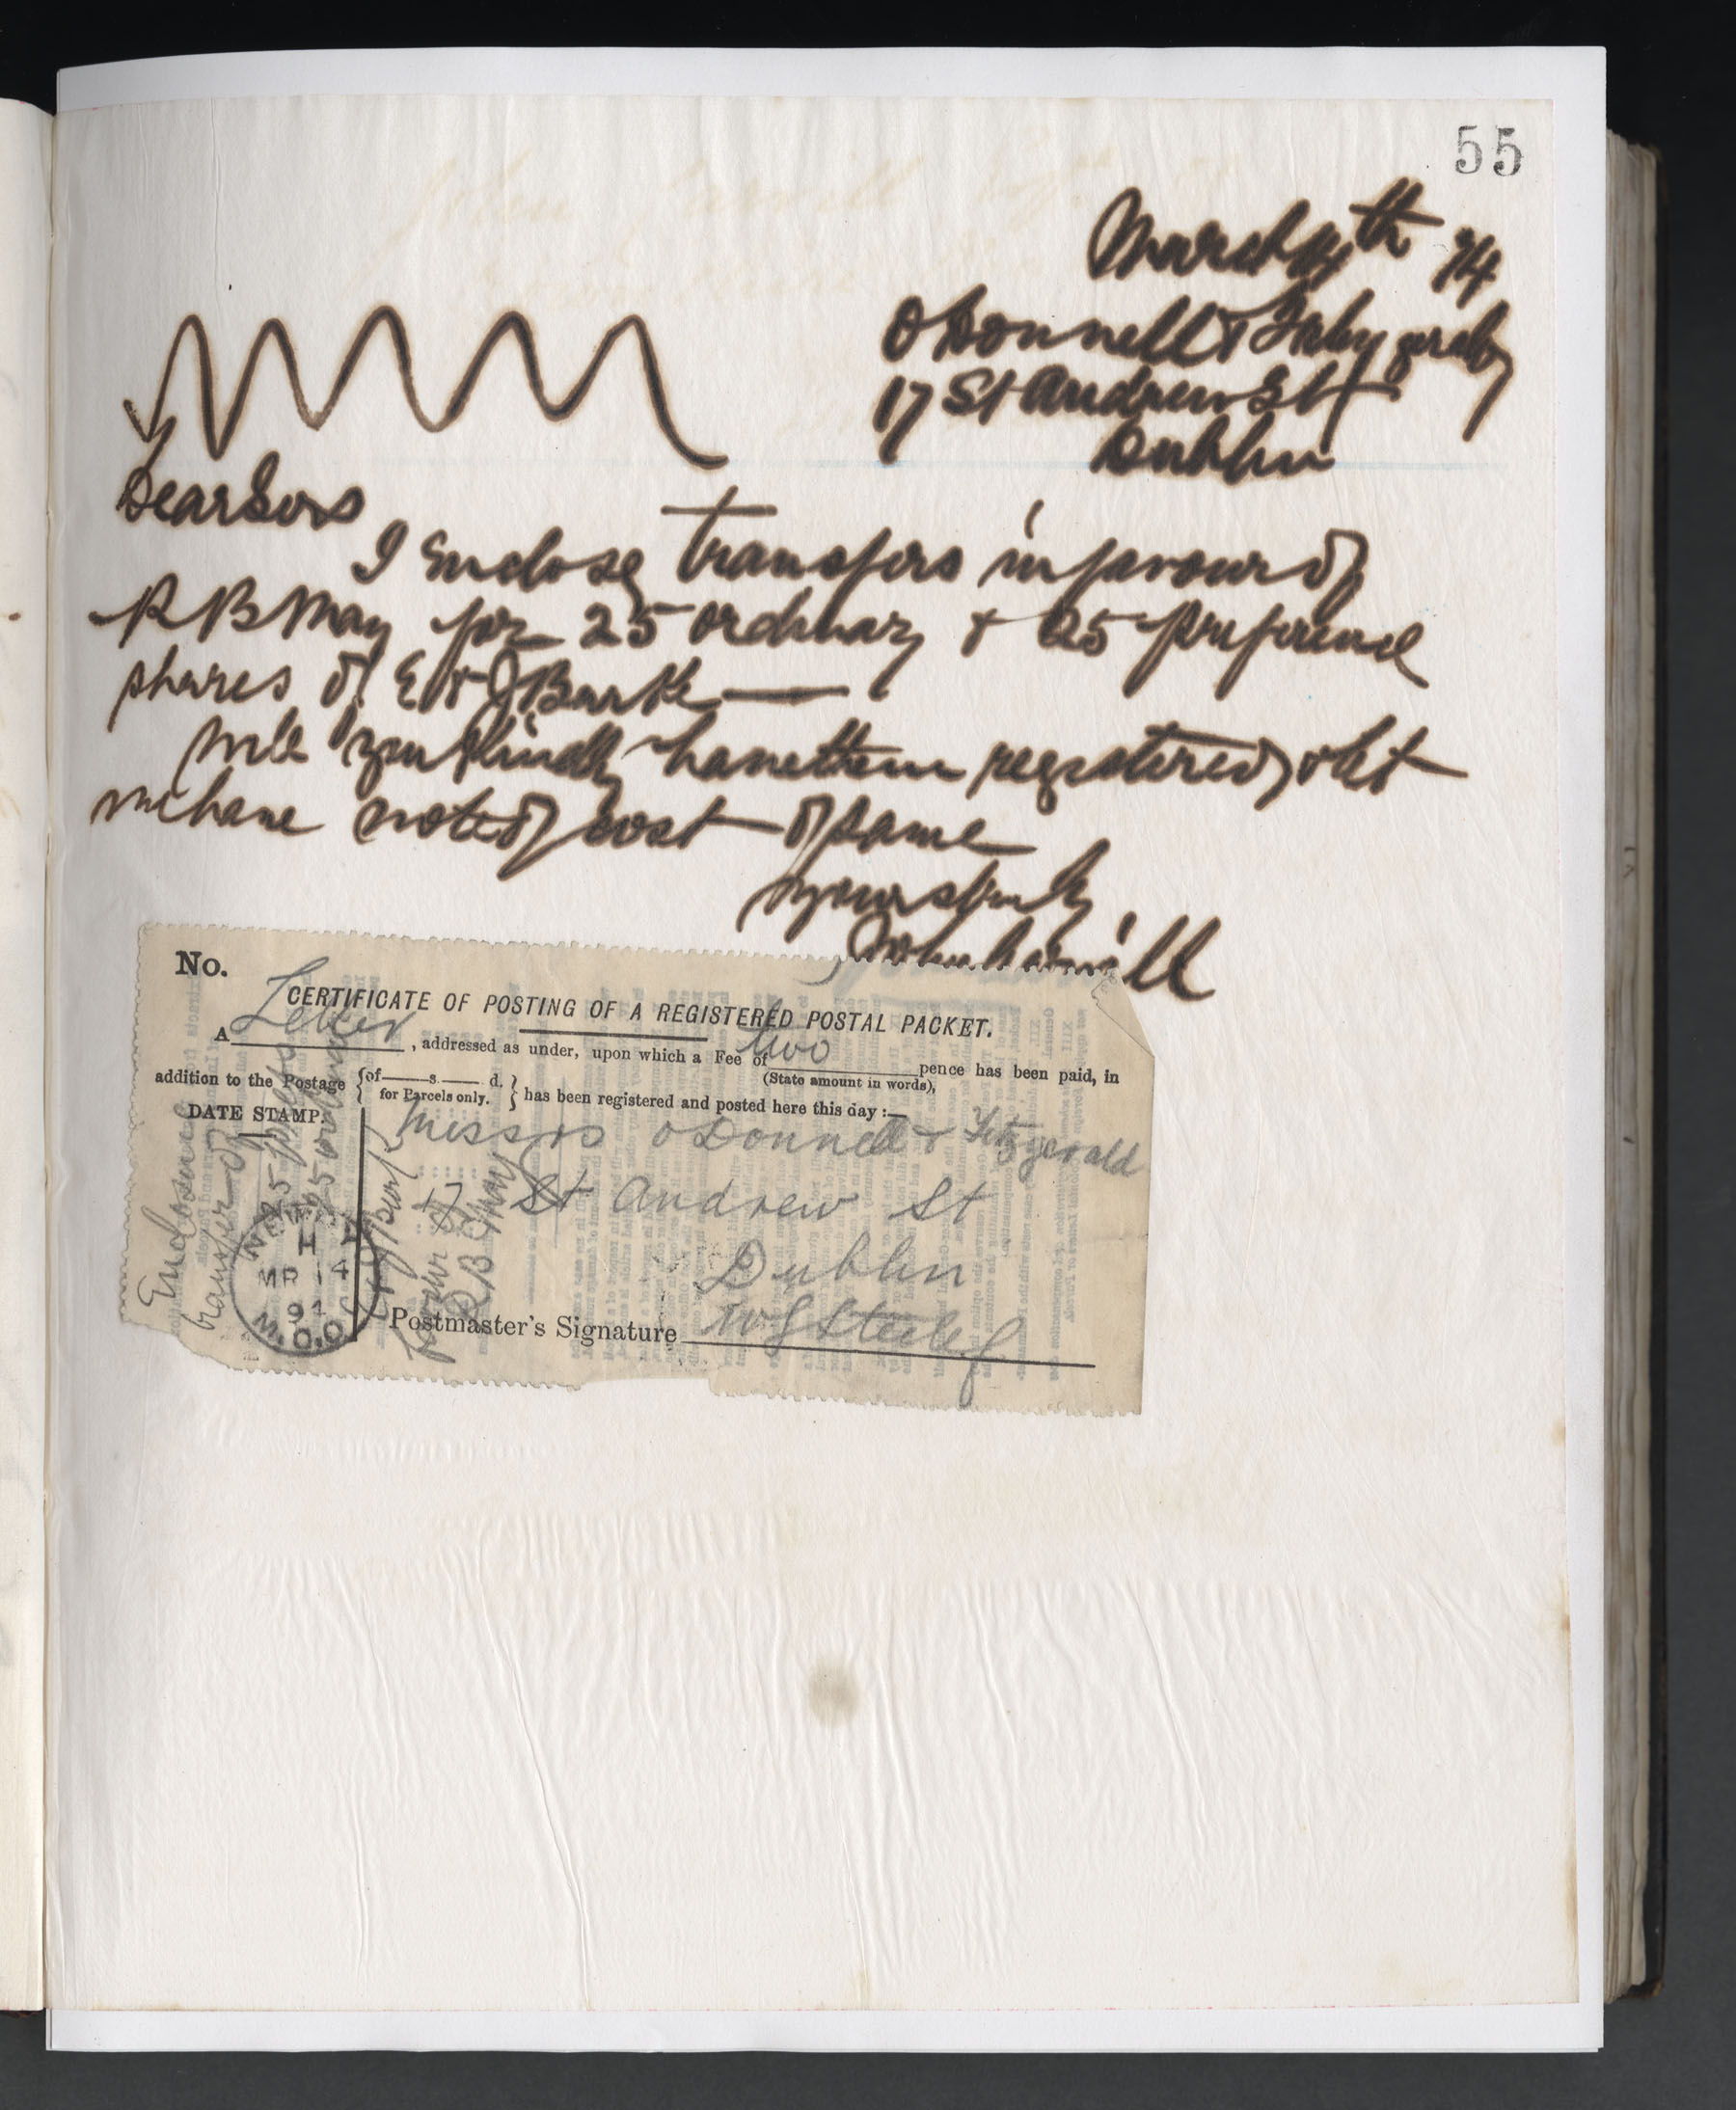 55
March 14th 94
O'Donnell & Fitzgerald
17 St Andrew St
Dublin
Dear Sirs
I Enclose transfers in favour of
R B May for 25 ordinary & 25 preference
shares of E & J Burke —
Will you kindly have them registered & let
me have note of cost of same
yours truly
John Carvill
No.
CERTIFICATE OF POSTING OF A REGISTERED POSTAL PACKET.
A Letter, addressed as under, upon which a Fee of two pence has been paid, in
(State amount in words),
addition to the Postage {of s. d. for Parcels only.} has been registered and posted here this day :—
DATE STAMP.
Messrs O'Donnell & Fitzgerald
17 St Andrew St
Dublin
Postmaster's Signature W G Steele
Enclosure
transfer of
25
25 ordinary
favour of
R B May
NEWRY
H
MR 14
94
M.O.O.